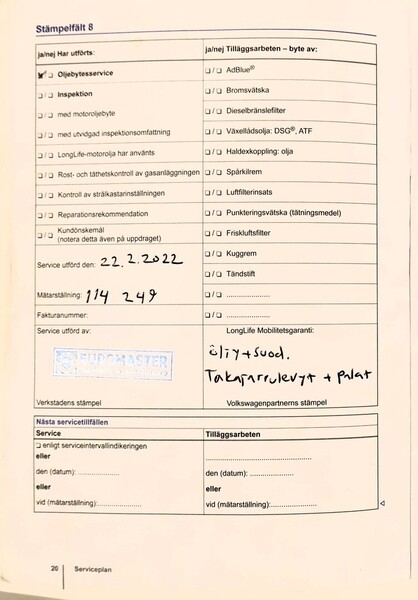 Stämpelfält 8
ja/nej Har utförts:
ja/nej Tilläggsarbeten – byte av:
❑ / ❑ Oljebytesservice
❑ / ❑ AdBlue®
❑ / ❑ Inspektion
❑ / ❑ Bromsvätska
❑ / ❑ med motoroljebyte
❑ / ❑ Dieselbränslefilter
❑ / ❑ med utvidgad inspektionsomfattning
❑ / ❑ Växellådsolja: DSG®, ATF
❑ / ❑ LongLife-motorolja har använts
❑ / ❑ Haldexkoppling: olja
❑ / ❑ Rost- och täthetskontroll av gasanläggningen
❑ / ❑ Spårkilrem
❑ / ❑ Kontroll av strålkastarinställningen
❑ / ❑ Luftfilterinsats
❑ / ❑ Reparationsrekommendation
❑ / ❑ Punkteringsvätska (tätningsmedel)
❑ / ❑ Kundönskemål
(notera detta även på uppdraget)
❑ / ❑ Friskluftsfilter
❑ / ❑ Kuggrem
Service utförd den: 22.2.2022
❑ / ❑ Tändstift
Mätarställning: 114 249
❑ / ❑ .....................
Fakturanummer:
❑ / ❑ .....................
Service utförd av:
LongLife Mobilitetsgaranti:
EUROMASTER
öljy+suod.
Takajarrulevyt + palat
Verkstadens stämpel
Volkswagenpartnerns stämpel
Nästa servicetillfällen
Service
Tilläggsarbeten
❑ enligt serviceintervallindikeringen
eller
den (datum): ...................
den (datum): ...................
eller
eller
vid (mätarställning):...................
vid (mätarställning):...................
20
Serviceplan